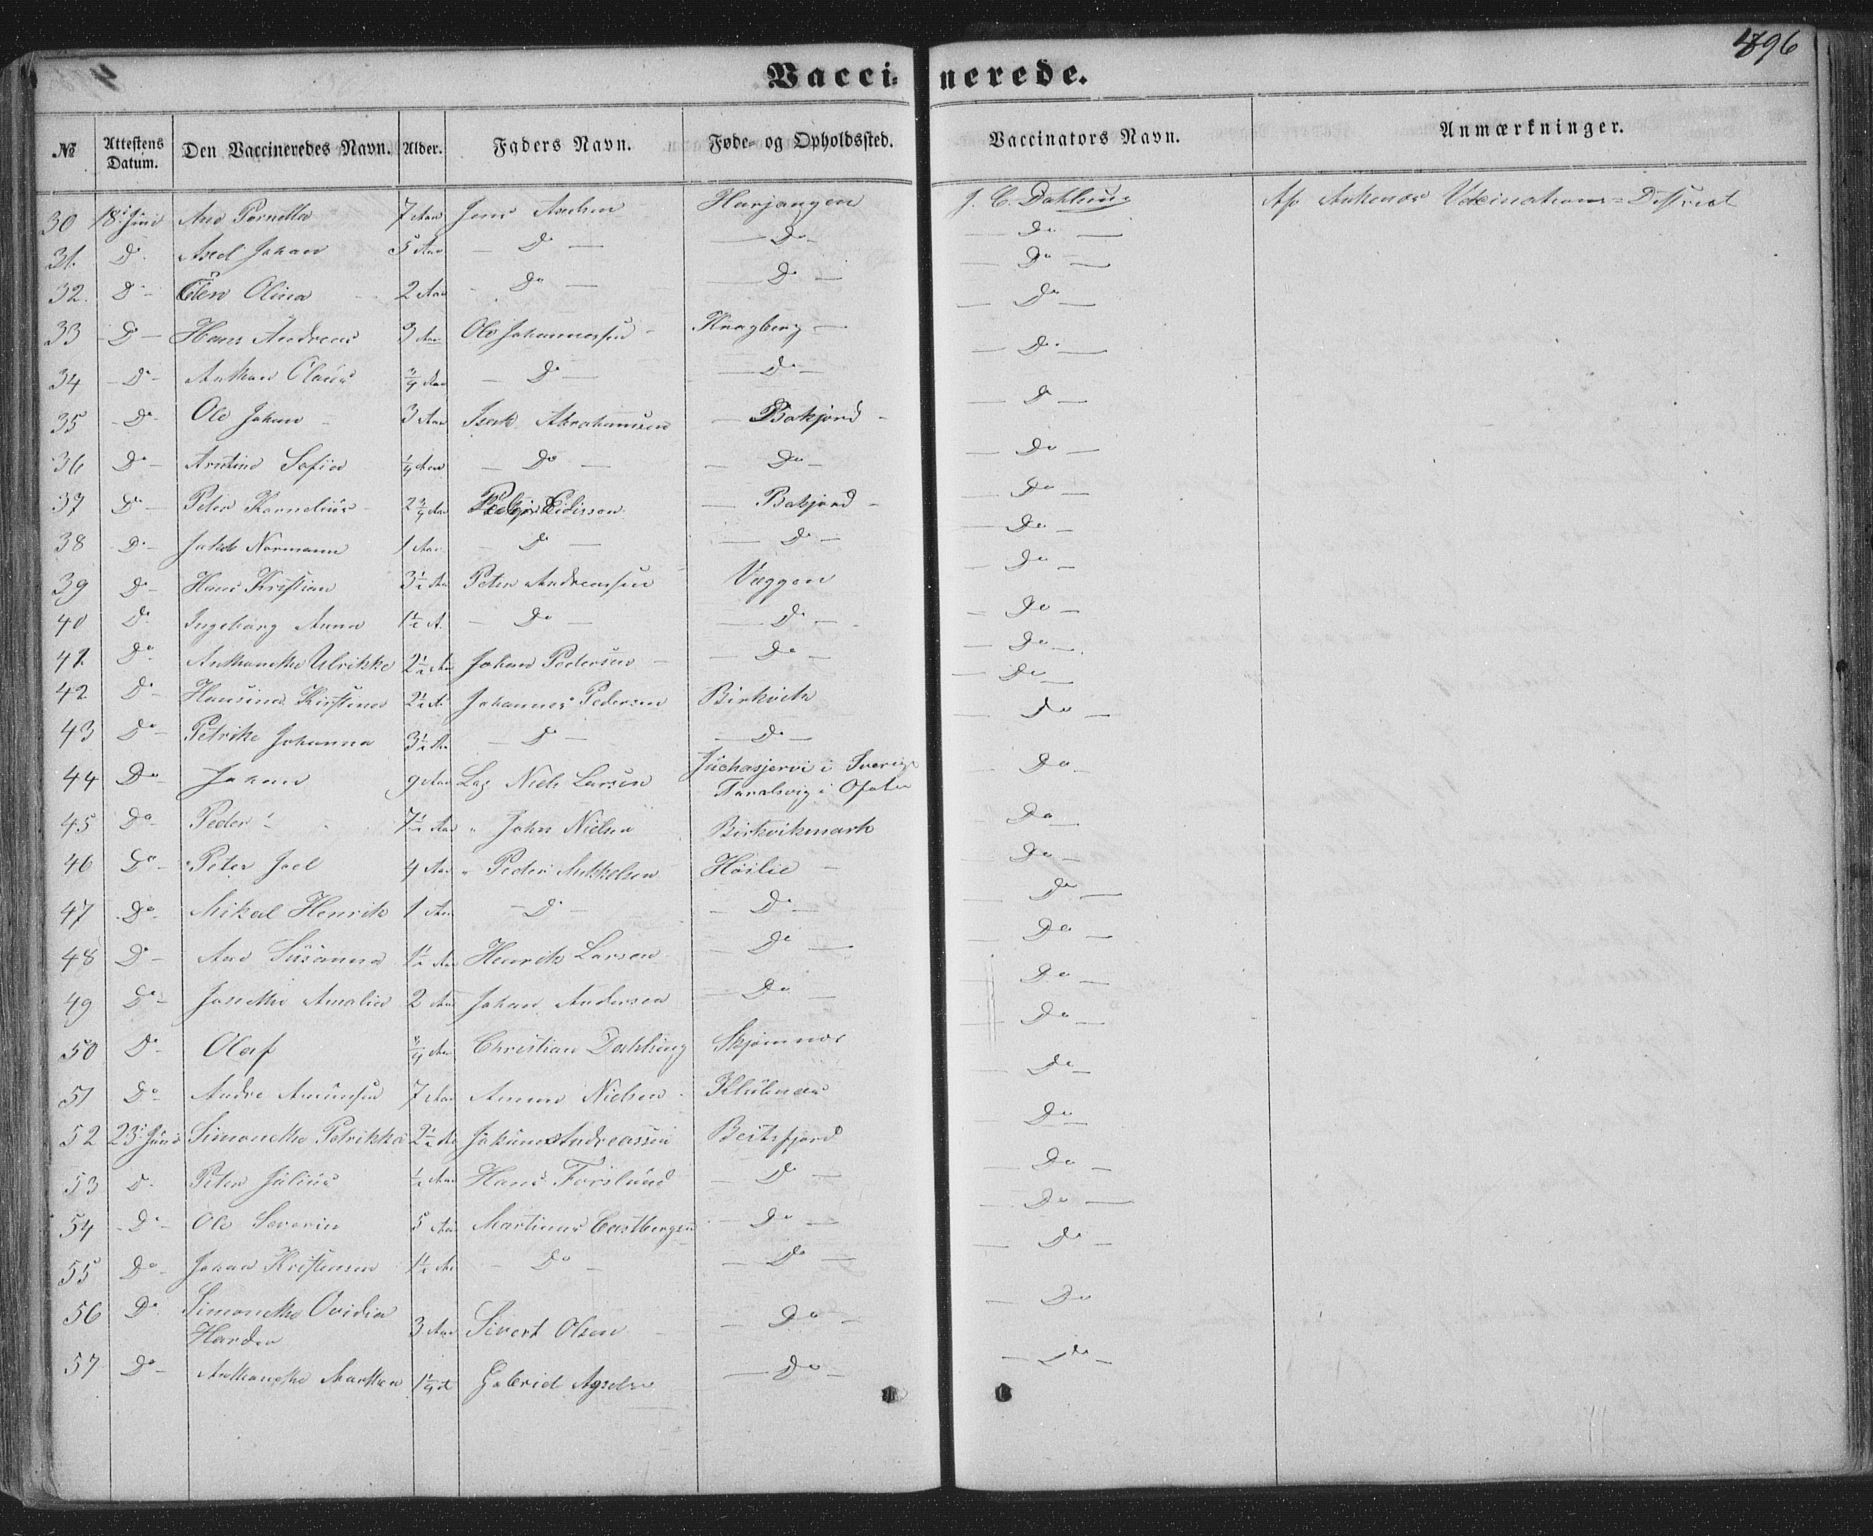 496
Vaccinerede.
№ Attestens Datum. Den Vaccineredes Navn. Alder. Faders Navn. Føde- og Opholdssted. Vaccinators Navn. Anmærkninger.
30 18' Juni Ane Pernella 7 Aar Jens Axelsen Herjangen J. C. Dahling Af Ankenes Vaccinations-District
31. Do Axel Johan 5 Aar — Do — — Do — — Do —
32. Do — Elen Olina 2 Aar — Do — — Do — — Do —
33 — Do — Hans Andreas 3 Aar Ole Johannessen Kragberg — — Do —
34 — Do — Anthon Claus ¾ Aar — Do — — Do — — Do —
35 — Do — Ole Johan 3 Aar Isak Abrahamsen — Bokjord — — Do —
36 Do — Arntine Sofia ¼ Aar — Do — — Do — — Do —
37 Do — Peter Kornelius 2¾ Aar Edissen — Bokjord — — Do —
38 Do — Jakob Normann 1 Aar — Do — — Do — — Do —
39 Do — Hans Kristian 3½ Aar Peter Andreassen Væggen — Do —
40 Do Ingeborg Anna 1½ A. — Do — — Do — — Do —
41. Do Anthonethe Ulrikke 2½ Aar Johan Pedersen — — Do — — Do —
42 Do — Hansina Kirstina 2½ A. Johannes Pedersen Birkvik — Do —
43 Do — Petrike Johanna 3½ Aar — Do — — Do — — Do —
44 Do Johan 9 Aar Lap Niels Larsen Juckasjervi i Sverige — Do —
Taralsvig i Ofoten
45 Do — Peder 7½ Aar " John Nielsen Birkvikmark — Do —
46 Do — Peter Joel 4 Aar " Peder Mikkelsen Høilie — — Do —
47 Do Mikal Henrik 1 Aar — Do — — Do — — Do —
48 Do — Ane Susanna 1½ Aar Henrik Larsen — Do — — Do —
49 Do — Josethe Amalia 2 Aar Johan Andersen — Do — — Do —
50 Do Olaf ¾ Aar Christian Dahling Skjomnes — Do —
51 Do Andre Amunsen 7 Aar Amun Nielsen Klubnes — Do —
52 23' Juni Simonethe Petrikka 2½ Aar Andreassen Beitsfjord — Do —
53 Do Peter Julius ½ Aar Hans Forslund — Do — — Do —
54 — Do — Ole Severin 5 Aar Martinus Castbergsen — Do — — Do —
55 Do — Johan Kristensen 1½ Aar — Do — — Do — — Do —
56 Do Simonethe Ovidia 3 Aar Sivert Olsen — Do — — Do —
Hardea
57 Do — Anthonethe Marthea 1¼ A Gabriel — Do — — Do —